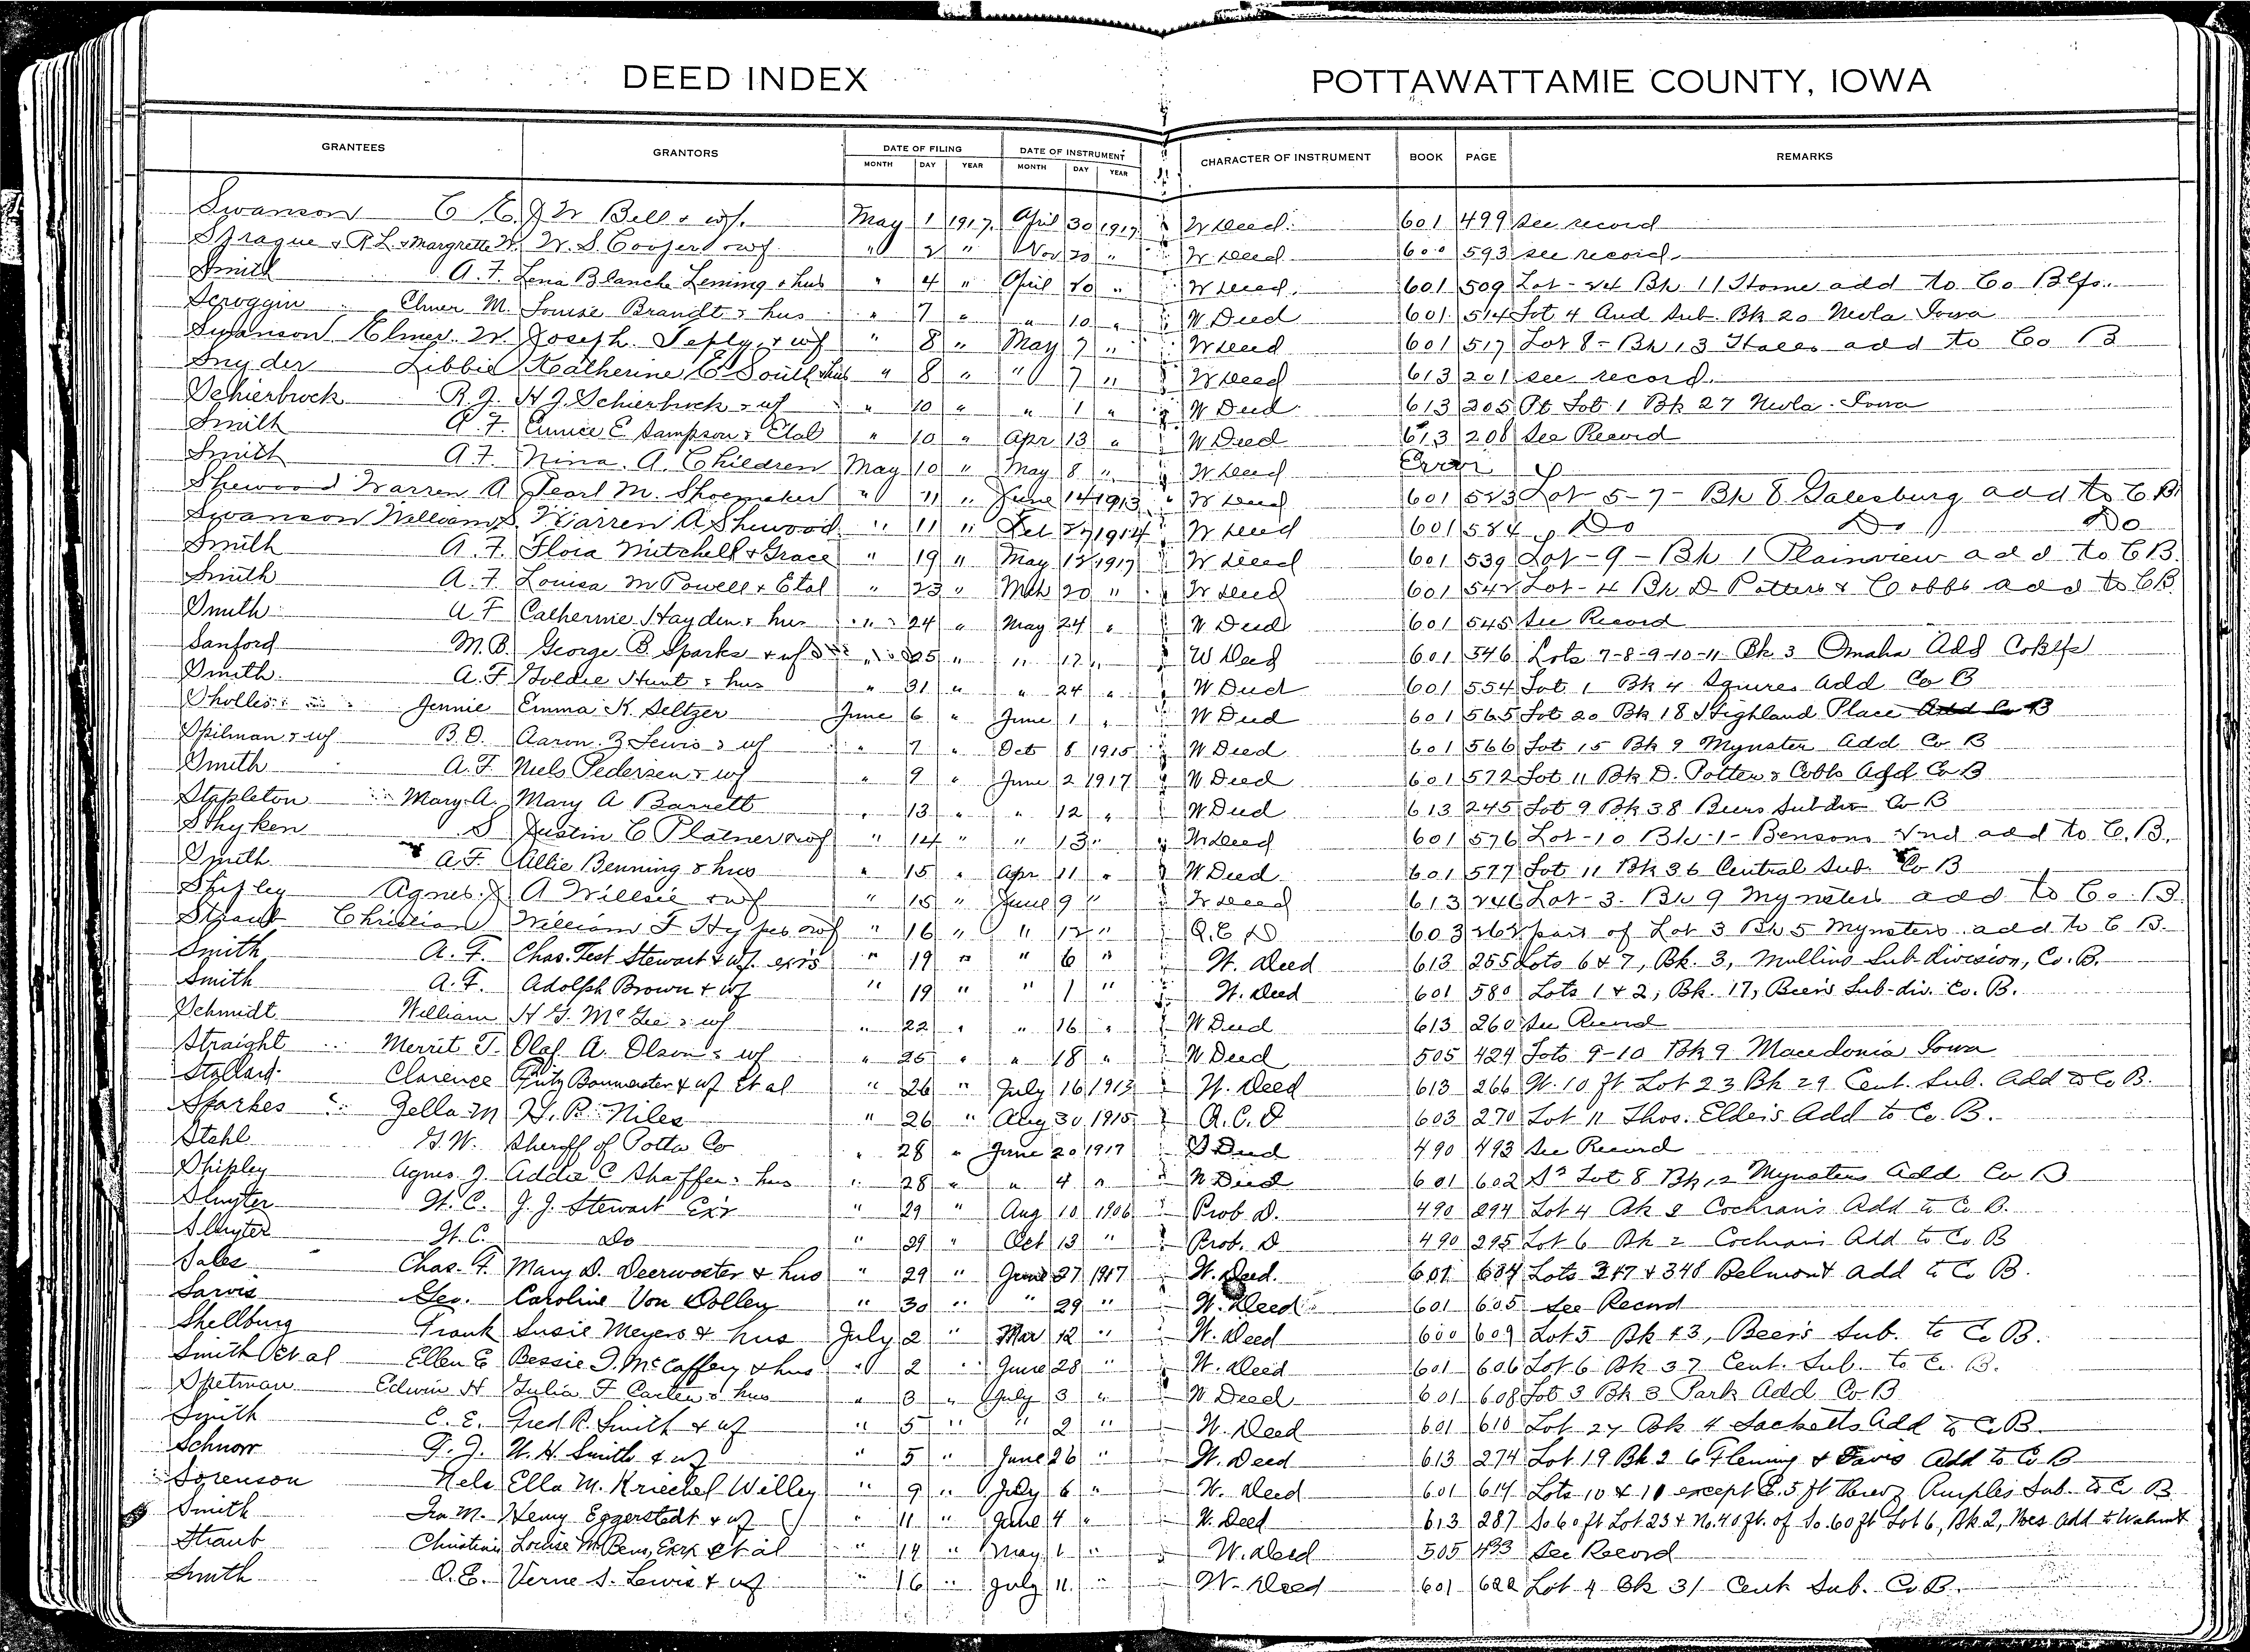 DEED INDEX POTTAWATTAMIE COUNTY, IOWA
GRANTEES GRANTORS DATE OF FILING DATE OF INSTRUMENT CHARACTER OF INSTRUMENT BOOK PAGE REMARKS
MONTH DAY YEAR MONTH DAY YEAR
Swanson C E. J W Bell & wf. May 1 1917 April 30 1917 W Deed 601 499 see record
Sprague & R L & Margrette W. W. S. Cooper & wf " 2 " Nov 20 " W Deed 600 593 see record
Smith A. F. Lena Blanche Leming & hus " 4 " April 20 " W Deed 601 509 Lot - 24 Bk 11 Home add to Co Blfs.
Scroggin Elmer M. Louise Brandt & hus " 7 " " 10 " W Deed 601 514 Lot 4 Aud Sub. Bk 20 Neola Iowa
Swanson Elmer W. Joseph Teply & wf " 8 " May 7 " W Deed 601 517 Lot 8 - Bk 13 Halls add to Co B
Snyder Libbie Katherine E South & hus " 8 " " 7 " W Deed 613 201 see record
Schierbrock R. J. H J. Schierbrock & wf " 10 " " 1 " W Deed 613 205 Pt Lot 1 Bk 27 Neola Iowa
Smith A. F. Eunice E Sampson & Etal " 10 " Apr 13 " W Deed 613 208 See Record
Smith A. F. Nina A. Children May 10 " May 8 " W Deed Error
Shewood Warren A Pearl M. Shoemaker " 11 " June 14 1913 " W Deed 601 523 Lot 5-7- Bk 8 Galesburg add to C. B.
Swanson William S. Warren A Shewood " 11 " 1914 W Deed 601 524 Do Do Do
Smith A. F. Floia Mitchell & Grace " 19 " May 12 1917 W Deed 601 539 Lot - 9 - Bk 1 Plainview add to C B.
Smith A. F. Louisa M Powell & Etal " 23 " Mch 20 " W Deed 601 542 Lot - 4 Bk D Potters & Cobbs add to C B
Smith A F Catherine Hayden & hus " 24 " May 24 " W Deed 601 545 See Record
Sanford M. B. George B. Sparks & wf " 25 " " 12 " W Deed 601 546 Lots 7-8-9-10-11 Bk 3 Omaha Add CoBlfs
Smith A. F. Goldie Hunt & hus " 31 " " 24 " W Deed 601 554 Lot 1 Bk 4 Squires Add Co B
Sholles Jennie Emma K. Seltzer June 6 " June 1 " W Deed 601 565 Lot 20 Bk 18 Highland Place Add Co B
Spilman & wf B. O. Aaron Z Lewis & wf " 7 " Oct 8 1915 W Deed 601 566 Lot 15 Bk 9 Mynster Add Co B
Smith A. F. Niels Pedersen & wf " 9 " June 2 1917 W Deed 601 572 Lot 11 Bk D. Potter & Cobb Add Co B
Stapleton Mary A. Mary A Barrett " 13 " " 12 " W Deed 613 245 Lot 9 Bk 38 Beers Subdiv Co B
Sthyken S Justin C Platner & wf " 14 " " 13 " W Deed 601 576 Lot - 10 Blk-1- Bensons 2nd add to C. B.
Smith A. F. Allie Benning & hus " 15 " Apr 11 " W Deed 601 577 Lot 11 Bk 36 Central Sub. Co B
Shipley Agnes J. A Willsie & wf " 15 " June 9 " W Deed 613 246 Lot - 3. Bk 9 Mynsters add to Co. B.
Straub Christian William F Hypes & wf " 16 " " 12 " Q. C D 603 262 part of Lot 3 Bk 5 Mynsters add to C B.
Smith A. F. Chas. Test Stewart & wf. exrs " 19 " " 6 " W. Deed 613 255 Lots 6 & 7, Bk. 3, Mullins Subdivision, Co. B.
Smith A. F. Adolph Brown & wf " 19 " " 1 " W. Deed 601 580 Lots 1 & 2, Bk. 17, Beers Sub-div. Co. B.
Schmidt William H G. McGee & wf " 22 " " 16 " W Deed 613 260 See Record
Straight Merrit T. Olaf A. Olson & wf " 25 " " 18 " W Deed 505 424 Lots 9-10 Bk 9 Macedonia Iowa
Stallard Clarence Fritz Baumeister & wf Et al " 26 " July 16 1913 W. Deed 613 266 W. 10 ft Lot 23 Bk 29 Cent. Sub. Add to Co B.
Sparkes Zella M H. R. Niles " 26 " Aug 30 1915 Q. C. D 603 270 Lot 11 Thos. Elders Add to Co. B.
Stahl G. W. Sheriff of Potta Co " 28 " June 20 1917 S Deed 490 493 See Record
Shipley Agnes J. Addie C Shaffer & hus " 28 " " 4 " W Deed 601 602 Lot 8 Bk 12 Mynsters Add Co B
Sluyter W. C. J. J. Stewart Exr " 29 " Aug 10 1906 Prob D. 490 294 Lot 4 Bk 2 Cochrans Add to Co B.
Sluyter W. C. Do " 29 " Oct 13 " Prob. D 490 295 Lot 6 Bk 2 Cochrans Add to Co B
Sales Chas. F. Mary D. Deerwoster & hus " 29 " June 27 1917 W. Deed. 601 604 Lots 347 & 348 Belmont Add to Co B.
Sarvis Geo. Caroline Von Dolley " 30 " " 29 " W. Deed 601 605 See Record
Shellburg Frank Susie Meyers & hus July 2 " Mar 12 " W. Deed 600 609 Lot 5 Bk 13, Beers Sub. to Co B.
Smith Et al Ellen E Bessie I. McCaffery & hus " 2 " June 28 " W. Deed 601 606 Lot 6 Bk 37 Cent. Sub. to Co. B.
Spetman Edwin H Julia F Carter & hus " 3 " July 3 " W Deed 601 608 Lot 3 Bk 3 Park Add Co B
Smith C. E. Fred R. Smith & wf " 5 " " 2 " W. Deed 601 610 Lot 27 Bk 4 Sacketts Add to Co B.
Schnorr F. J. W. H. Smith & wf " 5 " June 26 " W. Deed 613 274 Lot 19 Bk 26 Fleming & Davis Add to Co B
Sorenson Nels Ella M. Kriechel Willey " 9 " July 6 " W. Deed 601 614 Lots 10 & 11 except E. 5 ft thereof Rumples Sub. to Co B
Smith Ira M. Henry Eggerstedt & wf " 11 " June 4 " W. Deed 613 287 So 60 ft Lot 25 & No. 40 ft. of So. 60 ft Lot 6, Bk. 2, Noes Add to Walnut
Straub Christina Louise M Bens, Exrx et al " 14 " May 1 " W. Deed 505 433 See Record
Smith O. E. Verne S. Lewis & wf " 16 " July 11 " W. Deed 601 622 Lot 4 Bk 31 Cent Sub. Co B.